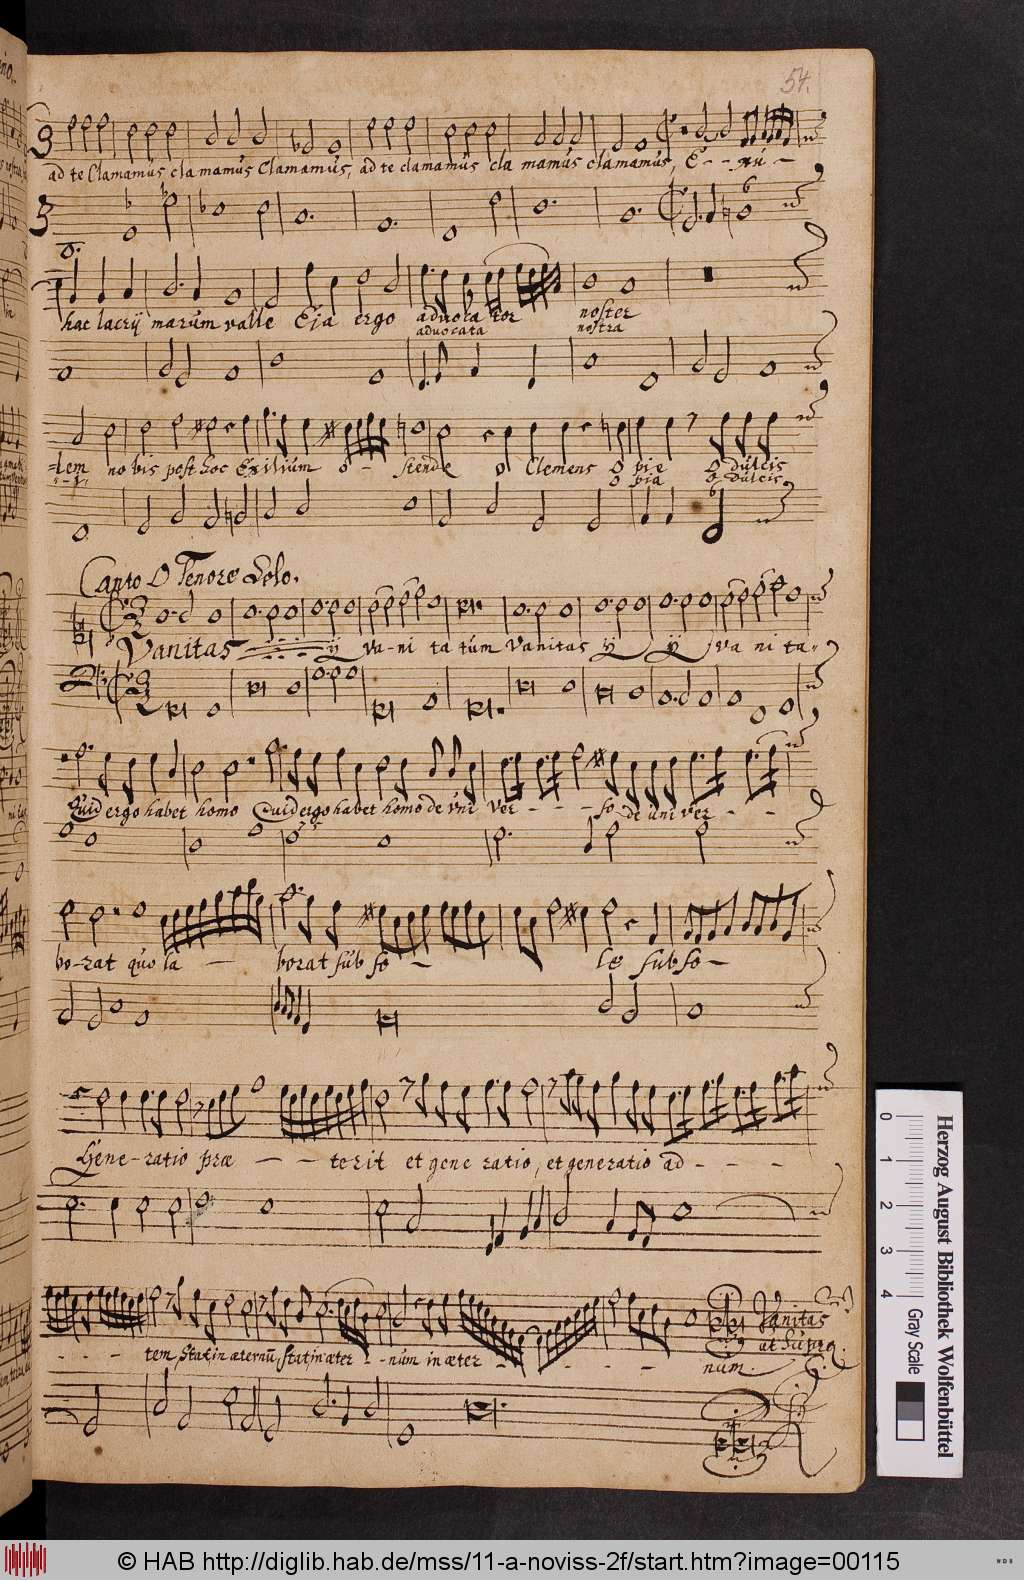 54.
ad te Clamamus cla mamus Clamamus, ad te clamamus cla mamus clamamus, E - - xu -
hac lacrij marum valle Eja ergo advoca tor noster
advocata nostra
=lem no bis post hoc Exilium o - stende o Clemens O pie O dulcis
O pia O dulcis
Canto O Tenore Solo.
Vanitas ij va-ni ta tum Vanitas ij ij va ni ta-
Quid ergo habet homo Quid ergo habet homo de uni ver - - - so de uni ver - -
bo-rat quo la - borat sub so - le sub so -
Gene-ratio præ - - - terit et gene ratio, et generatio ad - - - -
- - - tem, Stat in æternu, stat in æter - - num in æter - - - - - num.
Vanitas
ut Supra.
Herzog August Bibliothek Wolfenbüttel
0 1 2 3 4 Gray Scale
© HAB http://diglib.hab.de/mss/11-a-noviss-2f/start.htm?image=00115